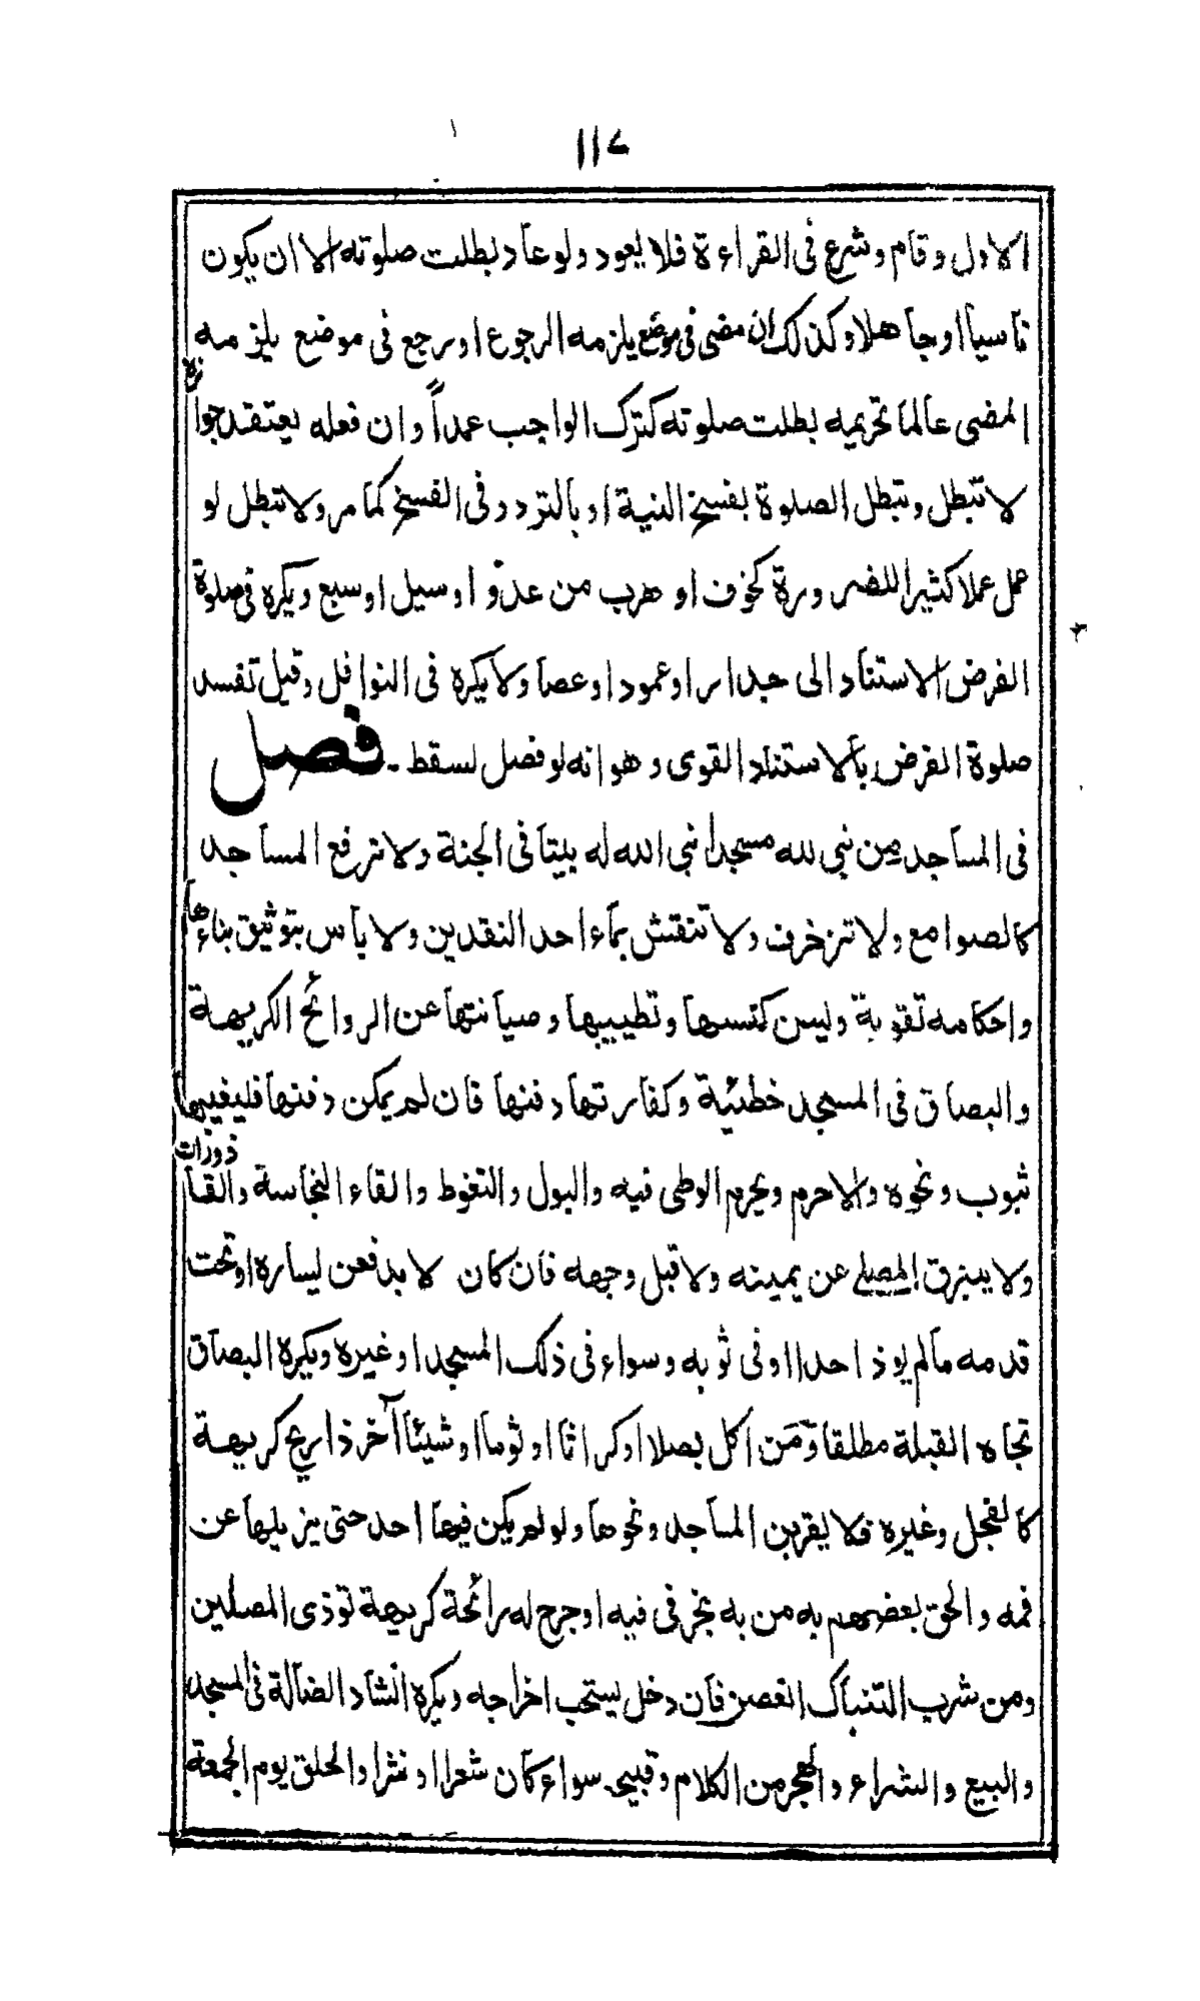 ١١٧
الاول وقام وشرع فى القراءة فلا يعود ولو عاد بطلت صلوته الا ان يكون
ناسيا او جاهلا وكذلك ان مضى فى موضع يلزمه الرجوع او رجع فى موضع يلزمه
المضى عالما تحريمه بطلت صلوته كترك الواجب عمداً وان فعله يعتقد جوازه
لا تبطل وتبطل الصلوة بفسخ النية او بالتردد فى الفسخ كما مر ولا تبطل لو
عمل عملا كثيرا للضرورة كخوف او هرب من عدوّ او سيل او سبع ويكره فى صلوة
الفرض الاستناد الى جدار او عمود او عصا ولا يكره فى النوافل وقيل تفسد
صلوة الفرض بالاستناد القوى وهو انه لو فصل لسقط - فصل
فى المساجد من بنى لله مسجدا بنى الله له بيتا فى الجنة ولا ترفع المساجد
كالصوامع ولا تزخرف ولا تنقش بماء احد النقدين ولا باس بتوثيق بناءها
واحكامه تقوية وليسن كنسها وتطييبها وصيانتها عن الروائح الكريهة
والبصاق فى المسجد خطئية وكفارتها دفنها فان لم يمكن دفنها فليغيبها
ثبوب ونحوه والاحرم ويحرم الوطى فيه والبول والتغوط والقاء النجاسة والقاذورات
ولا يبزق المصلى عن يمينه ولا قبل وجهه فان كان لا بد فعن يساره او تحت
قدمه ما لم يوذ احدا او فى ثوبه وسواء فى ذلك المسجد او غيره ويكره البصاق
تجاه القبلة مطلقا ومَن اكل بصلا او كراثا او ثوما او شيئا آخر ذا ريح كريهة
كالفجل وغيره فلا يقربن المساجد ونحوها ولو لم يكن فيها احد حتى يزيلها عن
فمه والحق بعضهم به من به بخر فى فيه او جرح له رائحة كريهة توذى المصلين
ومن شرب التنباك الغصن فان دخل يستحب اخراجه ويكره انشاد الضالة فى المسجد
والبيع والشراء والهجر من الكلام وقبيح سواء كان شعرا او نثرا والحلق يوم الجمعة